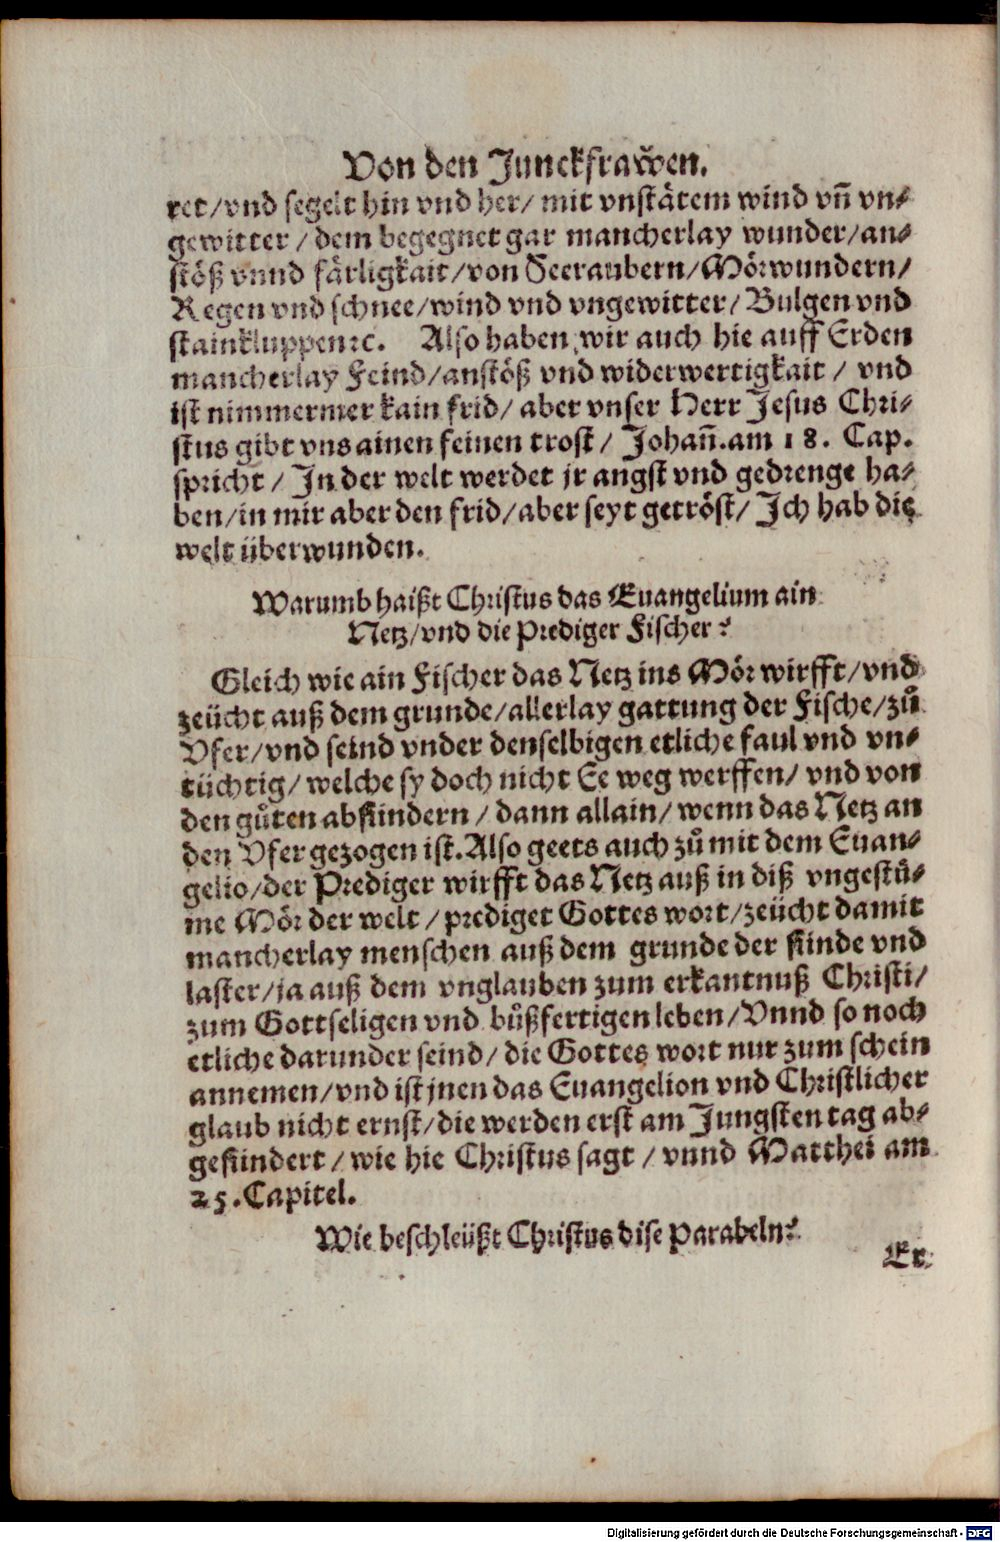 Von den Junckfrawen.
ret/vnd segelt hin vnd her/ mit vnstätem wind vñ vn⸗
gewitter / dem begegnet gar mancherlay wunder/an⸗
stöß vnnd färligkait/von Seeraubern/Mörwundern/
Regen vnd schnee/wind vnd vngewitter/ Bulgen vnd
stainkluppen ꝛc. Also haben wir auch hie auff Erden
mancherlay Feind/anstöß vnd widerwertigkait / vnd
ist nimmermer kain frid/ aber vnser Herr Jesus Chri⸗
stus gibt vns ainen feinen trost / Johañ.am 18. Cap.
spricht / In der welt werdet jr angst vnd gedrenge ha⸗
ben/in mir aber den frid/aber seyt getröst/ Ich hab die
welt überwunden.
Warumb haißt Christus das Euangelium ain
Netz/vnd die Prediger Fischer?
Gleich wie ain Fischer das Netz ins Mör wirfft/vnd
zeücht auß dem grunde/allerlay gattung der Fische/zů
Vfer/vnd seind vnder denselbigen etliche faul vnd vn⸗
tüchtig/ welche sy doch nicht Ee weg werffen/ vnd von
den gůten absündern / dann allain/ wenn das Netz an
den Vfer gezogen ist. Also geets auch zů mit dem Euan⸗
gelio/der Prediger wirfft das Netz auß in diß vngestů⸗
me Mör der welt / prediget Gottes wort/zeücht damit
mancherlay menschen auß dem grunde der sünde vnd
laster/ja auß dem vnglauben zum erkantnuß Christi/
zum Gottseligen vnd bůßfertigen leben/Vnnd so noch
etliche darunder seind/ die Gottes wort nur zum schein
annemen/vnd ist jnen das Euangelion vnd Christlicher
glaub nicht ernst/die werden erst am Jungsten tag ab⸗
gesündert / wie hie Christus sagt / vnnd Matthei am
25. Capitel.
Wie beschleüßt Christus dise Parabeln?
Er.
Digitalisierung gefördert durch die Deutsche Forschungsgemeinschaft - DFG